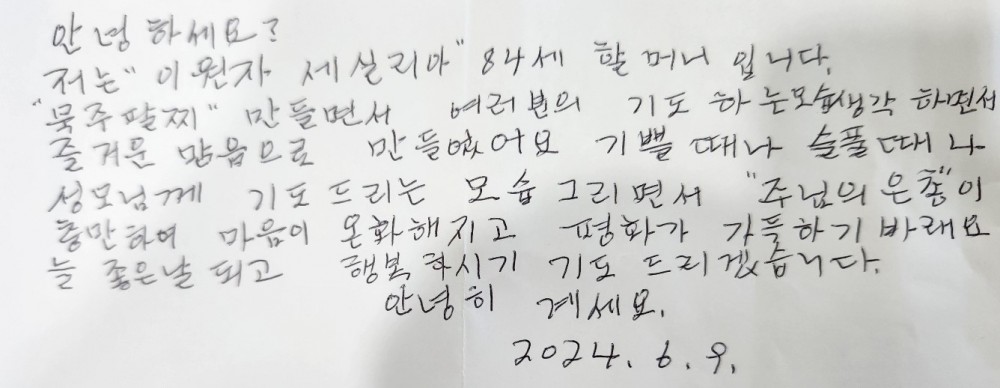 안녕 하세요?
저는 "이원자 세실리아" 84세 할머니 입니다.
"묵주팔찌" 만들면서 여러분의 기도 하는모습생각 하면서
즐거운 맘음으로 만들었어요 기쁠 때나 슬플때나
성모님께 기도 드리는 모습 그리면서 "주님의 은총"이
충만하여 마음이 온화해지고 평화가 가득하기 바래요
늘 좋은날 되고 행복 하시기 기도 드리겠습니다.
안녕히 계세요.
2024. 6. 9.